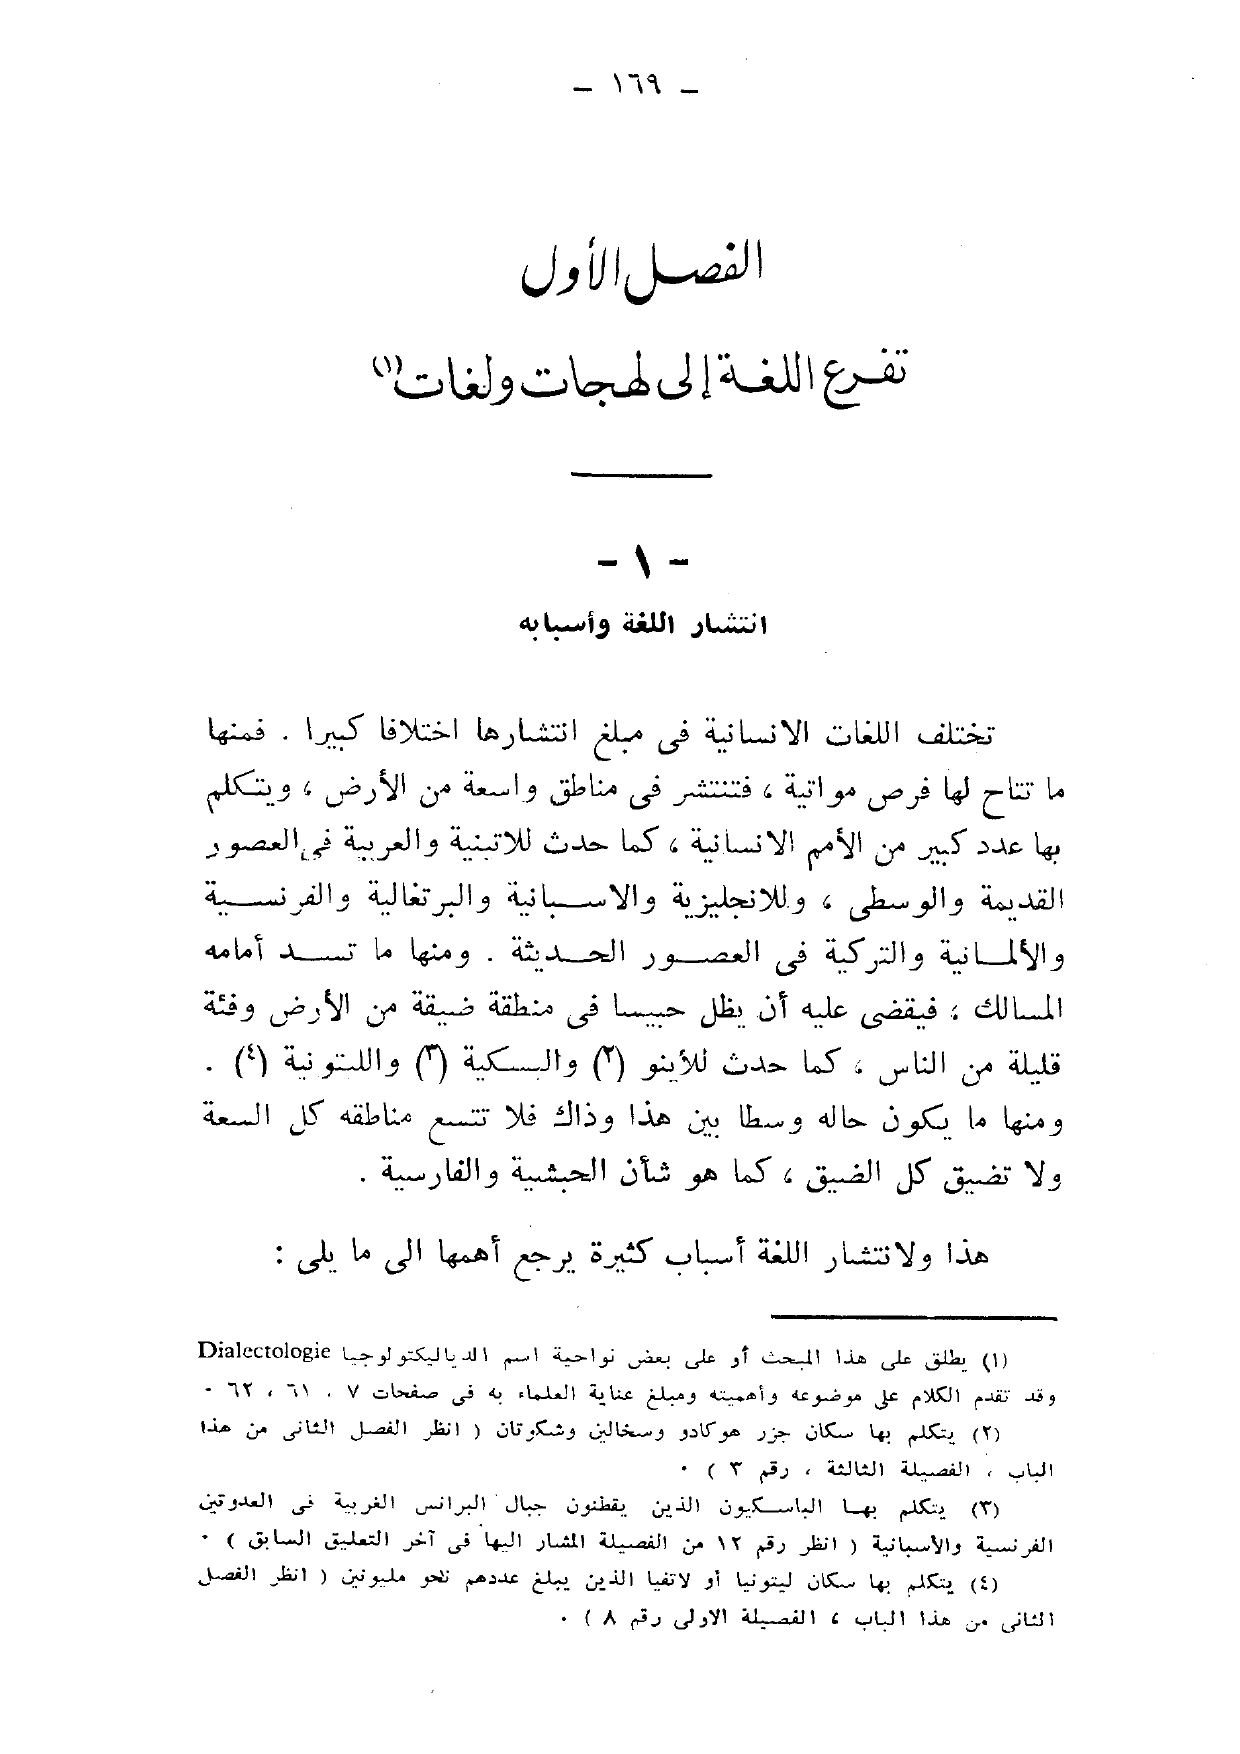 – ١٦٩ –
الفصل الأول
تفرع اللغة إلى لهجات ولغات(١)
- ١ -
انتشار اللغة وأسبابه
تختلف اللغات الانسانية فى مبلغ انتشارها اختلافا كبيرا . فمنها
ما تتاح لها فرص مواتية ، فتنتشر فى مناطق واسعة من الأرض ، ويتكلم
بها عدد كبير من الأمم الانسانية ، كما حدث للاتينية والعربية فى العصور
القديمة والوسطى ، وللانجليزية والاسبانية والبرتغالية والفرنسية
والألمانية والتركية فى العصور الحديثة . ومنها ما تسد أمامه
المسالك ، فيقضى عليه أن يظل حبيسا فى منطقة ضيقة من الأرض وفئة
قليلة من الناس ، كما حدث للأينو (٢) والبسكية (٣) واللتونية (٤) .
ومنها ما يكون حاله وسطا بين هذا وذاك فلا تتسع مناطقه كل السعة
ولا تضيق كل الضيق ، كما هو شأن الحبشية والفارسية .
هذا ولانتشار اللغة أسباب كثيرة يرجع أهمها الى ما يلى :
(١) يطلق على هذا المبحث أو على بعض نواحية اسم الدياليكتولوجيا Dialectologie
وقد تقدم الكلام على موضوعه وأهميته ومبلغ عناية العلماء به فى صفحات ٧ ، ٦١ ، ٦٢ .
(٢) يتكلم بها سكان جزر هوكادو وسخالين وشكوتان ( انظر الفصل الثانى من هذا
الباب ، الفصيلة الثالثة ، رقم ٣ ) .
(٣) يتكلم بها الباسكيون الذين يقطنون جبال البرانس الغربية فى العدوتين
الفرنسية والأسبانية ( انظر رقم ١٢ من الفصيلة المشار اليها فى آخر التعليق السابق ) .
(٤) يتكلم بها سكان ليتونيا أو لاتفيا الذين يبلغ عددهم نحو مليونين ( انظر الفصل
الثانى من هذا الباب ، الفصيلة الاولى رقم ٨ ) .